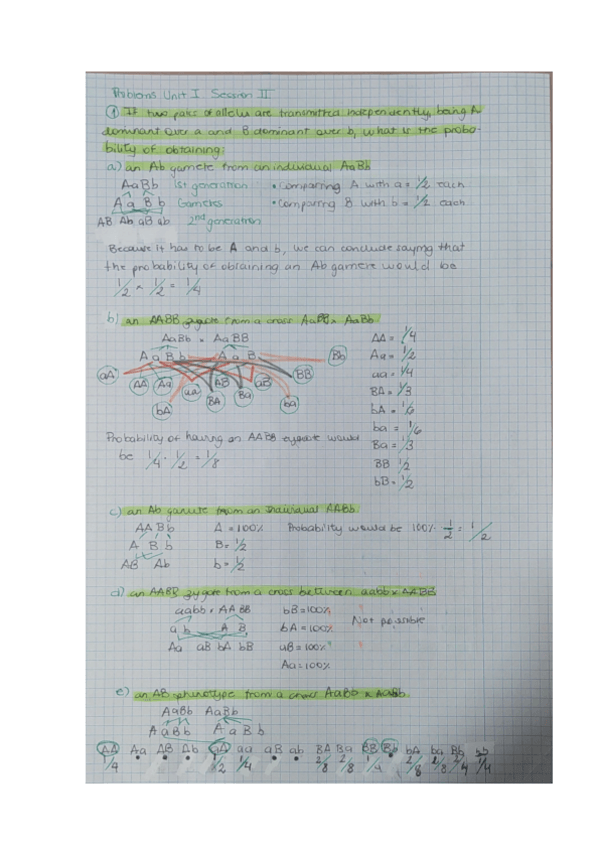 Problems Unit I Session II
① If two pairs of alleles are transmitted independently, being A
dominant over a and B dominant over b, what is the proba-
bility of obtaining:
a) an Ab gamete from an individual AaBb
AaBb 1st generation • Comparing A with a = 1/2 each
A a B b Gametes • Comparing B with b = 1/2 each
AB Ab aB ab 2nd generation
Because it has to be A and b, we can conclude saying that
the probability of obtaining an Ab gamete would be
1/2 × 1/2 = 1/4
b) an AABB zygote from a cross AaBB × AaBb
AaBb × AaBB
A a B b A a B
aA AA Aa aa bA BA AB Ba aB BB ba Bb
AA = 1/4
Aa = 1/2
aa = 1/4
BA = 1/3
bA = 1/6
ba = 1/6
Ba = 1/3
BB 1/2
bB = 1/2
Probability of having an AABB zygote would
be 1/4 · 1/2 = 1/8
c) an Ab gamete from an individual AABb
AABb A = 100% Probability would be 100% · 1/2 = 1/2
A B b B = 1/2
AB Ab b = 1/2
d) an AABB zygote from a cross between aabb × AABB
aabb × AABB bB = 100%
a b A B bA = 100% Not possible
Aa aB bA bB aB = 100%
Aa = 100%
e) an AB phenotype from a cross AaBb × AaBb.
AaBb AaBb
A a B b A a B b
AA Aa AB Ab aA aa aB ab BA Ba BB Bb bA ba Bb bb
1/4 1/2 1/4 2/8 2/8 1/4 2/8 2/8 2/4 1/4